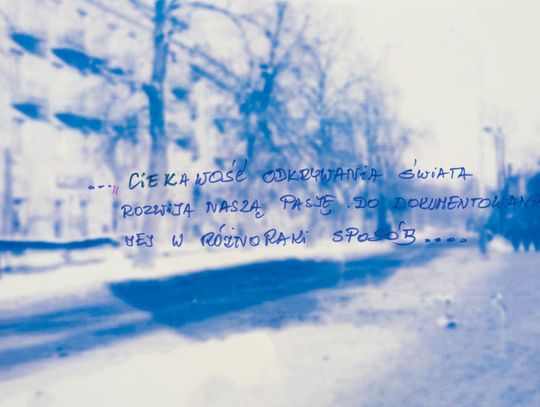 ...„ CIEKAWOŚĆ ODKRYWANIA ŚWIATA
ROZWIJA NASZĄ PASJĘ DO DOKUMENTOWAN
JEJ W RÓŻNORAKI SPOSÓB....